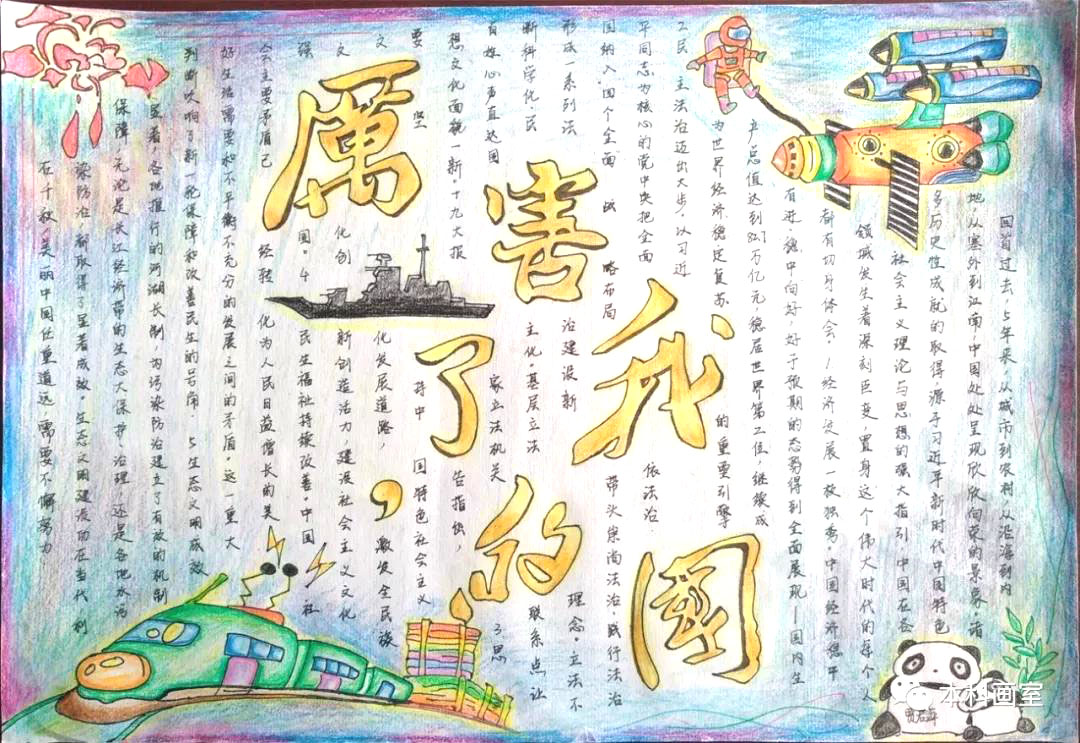 厲害了，我的國
回首过去,5年来,从城市到农村,从沿海到内
地,从塞外到江南,中国处处呈现欣欣向荣的景象,诸
多历史性成就的取得,源于习近平新时代中国特色
社会主义理论与思想的强大指引,中国在各
领域发生着深刻巨变,置身这个伟大时代的每个人
都有切身体会.1.经济发展一枝独秀,中国经济稳中
有进,稳中向好,好于预期的态势得到全面展现一国内生
产总值达到万亿元,稳居世界第二位,继续成
为世界经济稳定复苏的重要引擎
主法治迈出大步,以习近
平同志为核心的党中央把全面依法治
国纳入四个全面战略布局带头崇尚法治,践行法治
形成一系列法治建设新理念,立法不
断科学化,民主化,基层立法联系点让
百姓心声直达国家立法机关3思
想文化面貌一新,十九大报告指出,
要坚持中国特色社会主义
文化发展道路,激发全民族
文化创新创造活力,建设社会主义文化
强国。4民生福祉持续改善.中国社
会主要矛盾已经转化为人民日益增长的美
好生活需要和不平衡不充分的发展之间的矛盾。这一重大
判断吹响了新一轮保障和改善民生的号角.5生态文明成效
显著,各地推行的河湖长制为污染防治建立了有效的机制
保障,无论是长江经济带的生态大保护,治理,还是各地水污
染防治,都取得了显著成效。生态文明建设功在当代,利
在千秋,美丽中国任重道远,需要不懈努力
本科画室